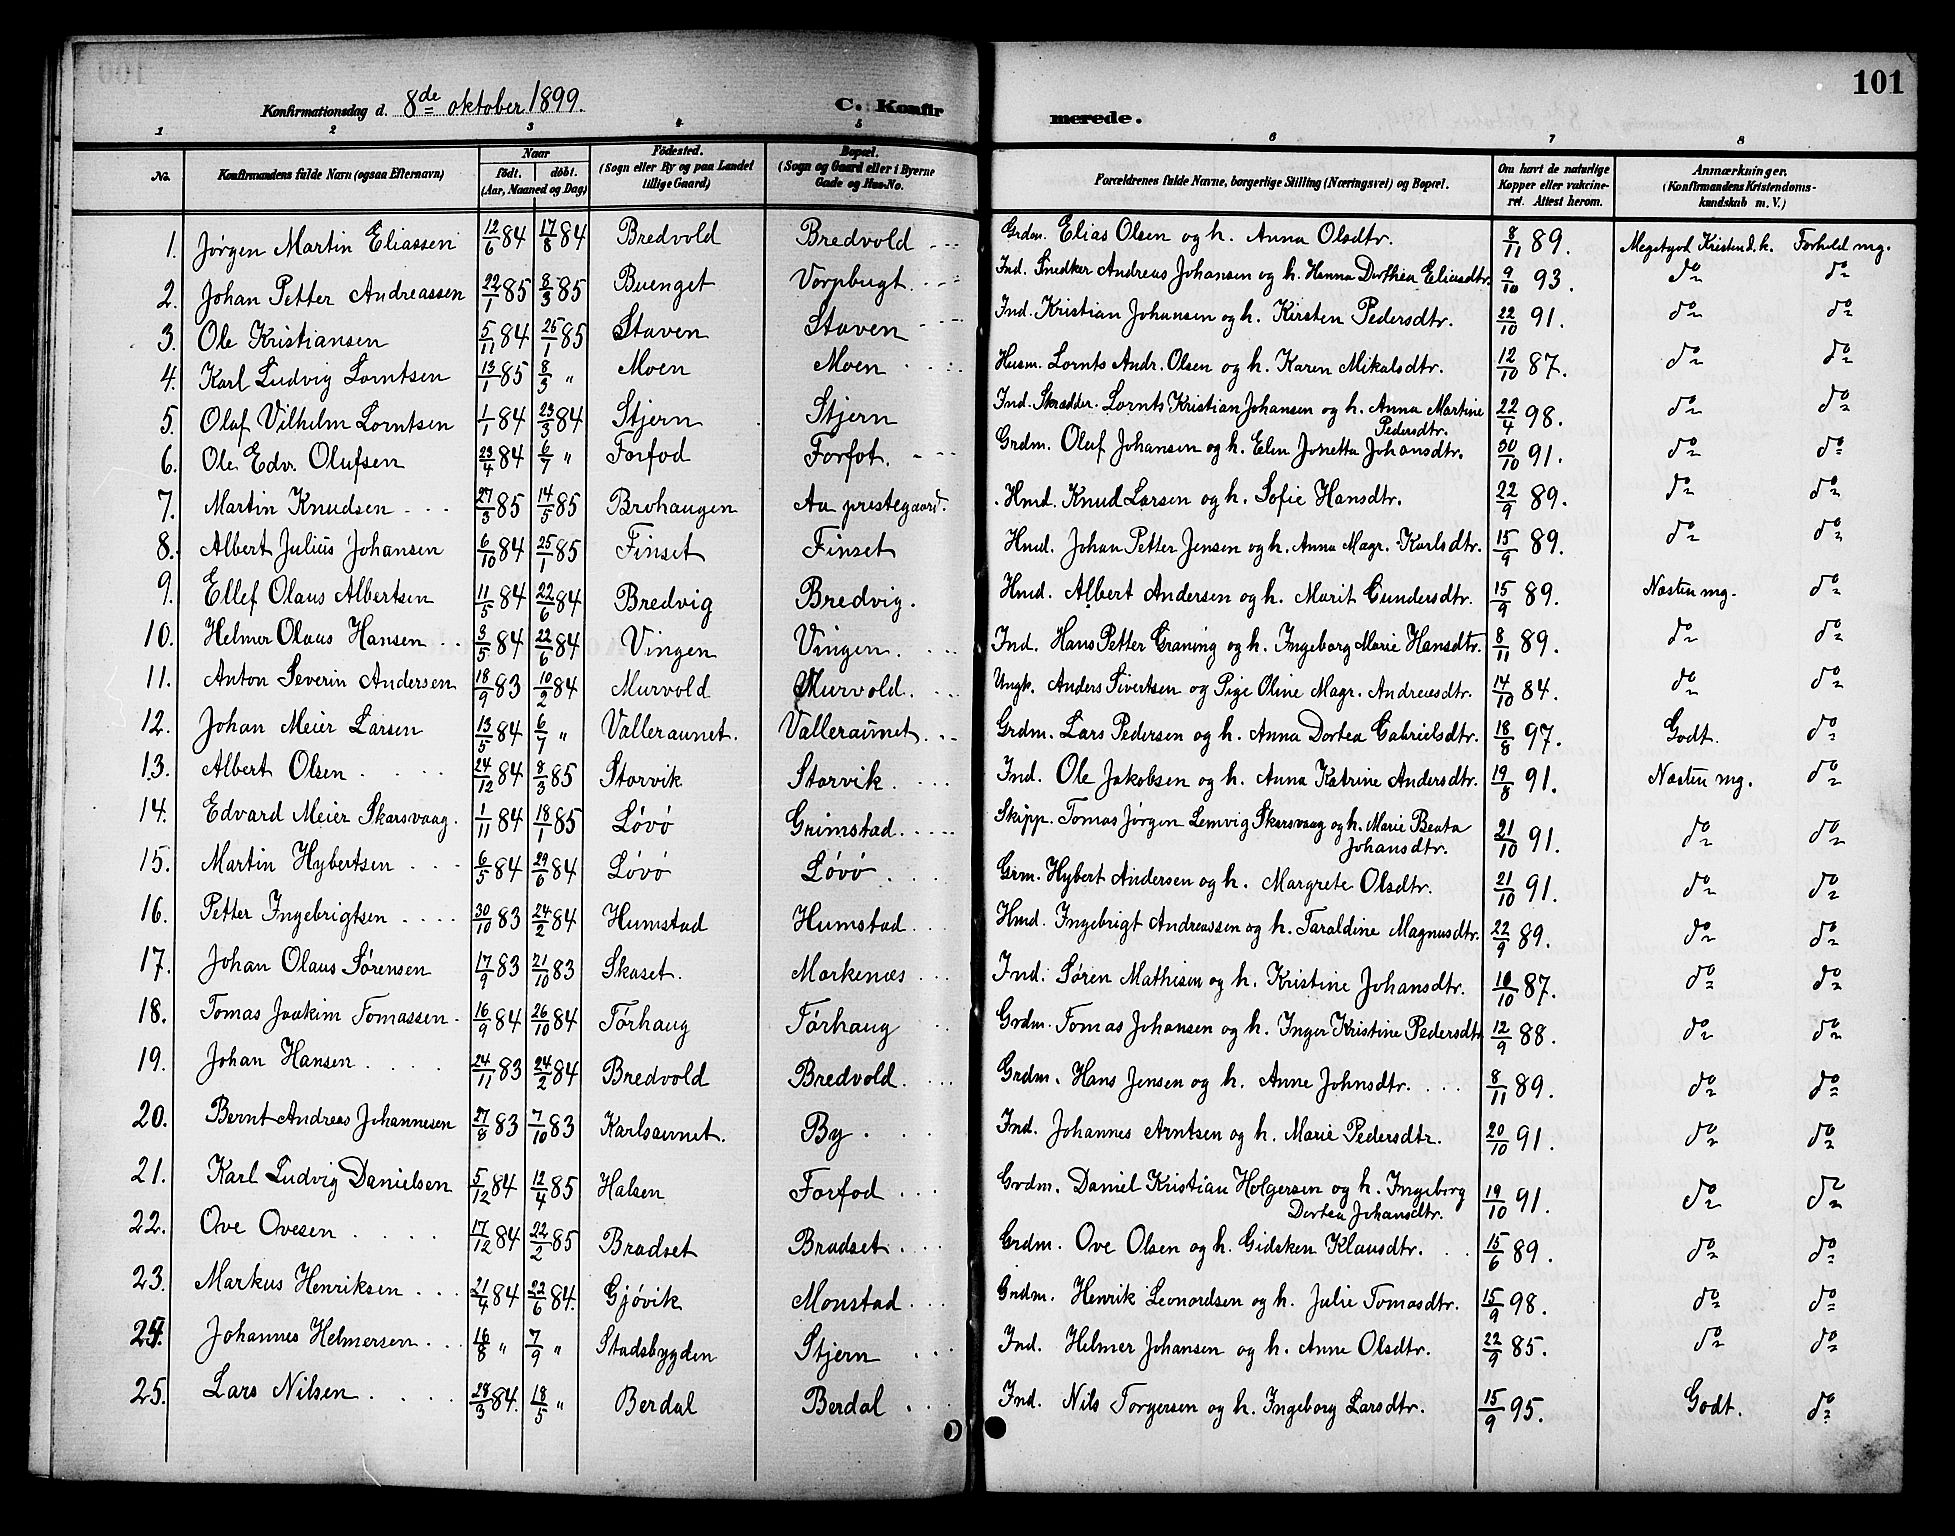 101
Konfirmationsdag d. 8de oktober 1899.
C. Konfirmerede.
1 2 3 4 5 6 7 8
No. Konfirmandens fulde Navn (ogsaa Efternavn) Naar født. døbt. (Aar, Maaned og Dag) Fødested. (Sogn eller By og paa Landet tillige Gaard) Bopæl. (Sogn og Gaard eller i Byerne Gade og Hus-No. Forældrenes fulde Navne, borgerlige Stilling (Næringsvei) og Bopæl. Om havt de naturlige Kopper eller vaccineret. Attest herom. Anmærkninger. (Konfirmandens Kristendomskundskab m. V.)
1. Jørgen Martin Eliassen 12/6 84 17/8 84 Bredvold Bredvold Grdm. Elias Olsen og h. Anna Olsdtr. 8/11 89. Megetgod Kristend.k. Forhold mg.
2. Johan Petter Andreassen 22/1 85 8/3 85 Buenget Vorpbugt Ind. Snedker Andreas Johansen og h. Hanna Dorthea Eliasdtr. 9/10 93. do do
3. Ole Kristiansen 5/11 84 25/1 85 Staven Staven Ind. Kristian Johansen og h. Kirsten Pedersdtr. 22/10 91. do do
4. Karl Ludvig Lorntsen 13/1 85 8/3 " Moen Moen Husm. Lornts Andr. Olsen og h. Karen Mikalsdtr. 12/10 87. do do
5. Olaf Vilhelm Lorntsen 1/1 84 23/3 84 Stjern Stjern Ind. Skrædder. Lornts Kristian Johansen og h. Anna Martine Pedersdtr. 22/4 98. do do
6. Ole Edv. Olufsen 23/4 84 6/7 " Forfod Forfot. Grdm. Oluf Johansen og h. Elen Jonetta Johansdtr. 30/10 91. do do
7. Martin Knudsen 27/3 85 14/5 85 Brohaugen Aa prestegaard. Hmd. Knud Larsen og h. Sofie Hansdtr. 22/9 89. do do
8. Albert Julius Johansen 6/10 84 25/1 85 Finset Finset Hmd. Johan Petter Jensen og h. Anna Magr. Karlsdtr. 15/9 89. do do
9. Ellef Olaus Albertsen 11/5 84 22/6 84 Bredvig Bredvig. Hmd. Albert Andersen og h. Marit Gundersdtr. 15/9 89. Næsten mg. do
10. Helmer Olaus Hansen 3/5 84 22/6 84 Vingen Vingen. Ind. Hans Petter Graning og h. Ingeborg Marie Hansdtr. 8/11 89. do do
11. Anton Severin Andersen 18/9 83 10/2 84 Murvold Murvold. Ungk. Anders Sivertsen og Pige Oline Magr. Andreasdtr. 14/10 84. do do
12. Johan Meier Larsen 13/5 84 6/7 " Valleraunet. Valleraunet. Grdm. Lars Pedersen og h. Anna Dortea Gabrielsdtr. 18/8 97. Godt. do
13. Albert Olsen 24/12 84 8/3 85 Storvik Storvik. Ind. Ole Jakobsen og h. Anna Katrine Andersdtr. 19/8 91. Næsten mg. do
14. Edvard Meier Skarsvaag. 1/11 84 18/1 85 Løvø Grimstad. Skipp. Tomas Jørgen Lemvig Skarsvaag og h. Marie Beata Johansdtr. 21/10 91. do do
15. Martin Hybertsen 6/5 84 29/6 84 Løvø Løvø Grm. Hybert Andersen og h. Margrete Olsdtr. 21/10 91. do do
16. Petter Ingebrigtsen 30/10 83 24/2 84 Humstad Humstad Hmd. Ingebrigt Andreassen og h. Taraldine Magnusdtr. 22/9 89. do do
17. Johan Olaus Sørensen 17/9 83 21/10 83 Skaset. Markenæs Ind. Søren Mathisen og h. Kristine Johansdtr. 10/10 87. do do
18. Tomas Joakim Tomassen 16/9 84 26/10 84 Tørhaug Tørhaug Grdm. Tomas Johansen og h. Inger Kristine Pedersdtr 12/9 88. do do
19. Johan Hansen 24/11 83 24/2 84 Bredvold Bredvold. Grdm. Hans Jensen og h. Anne Johnsdtr. 8/11 89. do do
20. Bernt Andreas Johannesen 27/8 83 7/10 83 Karlsaunet. By Ind. Johannes Arntsen og h. Marie Pedersdtr. 20/10 91. do do
21. Karl Ludvig Danielsen 5/12 84 12/4 85 Halsen Forfod Grdm. Daniel Kristian Holgersen og h. Ingeborg Dortea Johansdtr. 19/10 91. do do
22. Ove Ovesen 17/12 84 22/2 85 Bradset Bradset. Grdm. Ove Olsen og h. Gidsken Klausdtr. 15/6 89. do do
23. Markus Henriksen 21/4 84 22/6 84. Gjøvik Monstad Grdm. Henrik Leonardsen og h. Julie Tomasdtr. 15/9 98. do do
24. Johannes Helmersen 16/8 " 7/9 " Stadsbygden Stjern Ind. Helmer Johansen og h. Anne Olsdtr. 22/9 85. do do
25. Lars Nilsen 28/3 84. 18/5 " Berdal Berdal Ind. Nils Torgersen og h. Ingeborg Larsdtr. 15/9 95. Godt. do